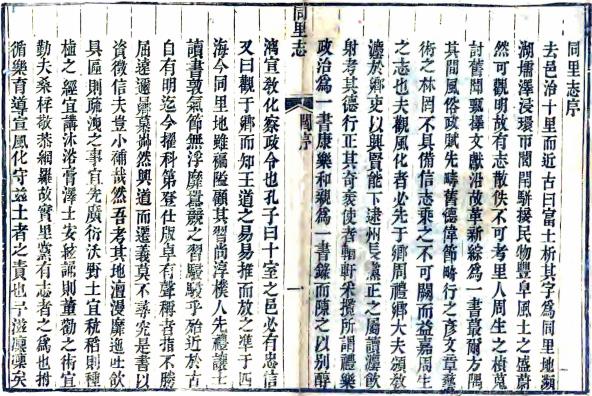 同里志序
去邑治十里而近古曰富土析其字為同里地瀕
湖壖澤浸環市闤闠駢接民物豐阜風土之盛蔚
然可觀明故有志散佚不可考里人周生之楨蒐
討舊聞甄擇文獻沿故革新綜為一書蕞爾方隅
其間風俗政賦先疇舊德偉節畸行之彥文章藝
術之林罔不具備信志乘之不可闕而益嘉周生
之志也夫觀風化者必先于鄉周禮鄉大夫頒教
灋於鄉吏以興賢能下逮州長黨正之屬讀灋飲
射考其德行正其奇衺使者輶軒采攬所謂禮樂
政治為一書康樂和親為一書錄而陳之以別醇
同里志
序
一
漓宣教化察政令也孔子曰十室之邑必有忠信
又曰觀于鄉而知王道之易易推而放之準于四
海今同里地雖褊隘顧其習尚淳樸人先禮讓士
讀書敦氣節無浮靡囂競之習駸駸乎殆近於古
自有明迄今擢科第登仕版卓有聲稱者指不勝
屈遠邇景慕翕然興道而遷義莫不尋究是書以
資徵信夫豈小補哉然吾考其地澶漫靡迤吐飲
具區則疏洩之事宜先廣衍沃野土宜秔稻則種
植之經宜講沐浴膏澤士安絃誦則董勸之術宜
勤夫桑梓敬恭網羅故實里黨有志者之為也拊
循樂育導宣風化守茲土者之責也予滋矣